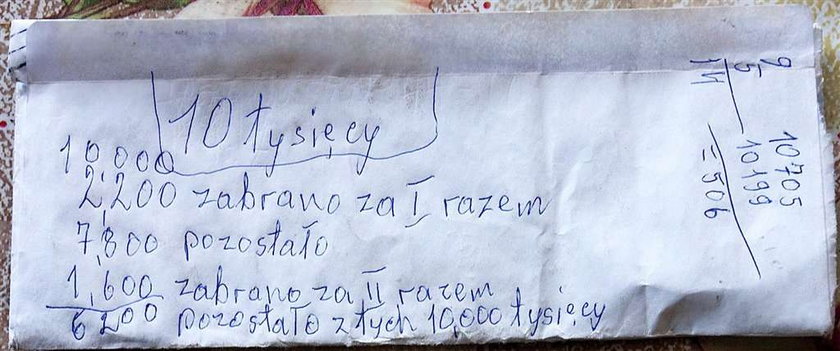 10 tysięcy
10,000
2,200 zabrano za I razem
7,800 pozostało
1,600 zabrano za II razem
6200 pozostało z tych 10,000 tysięcy
9
5
14
10705
10199
=506